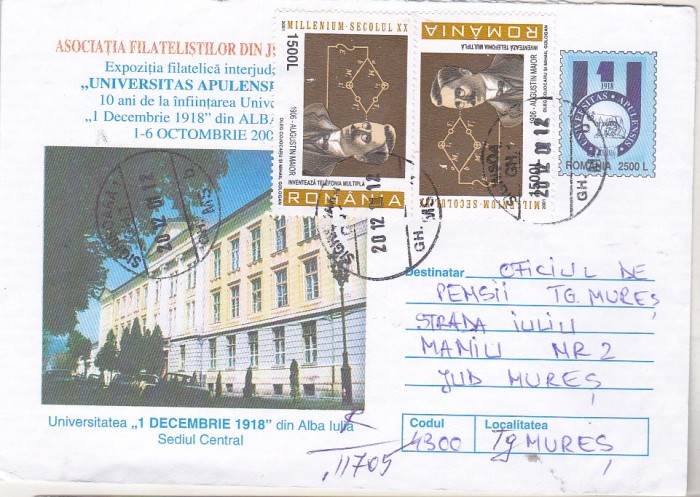 ASOCIAȚIA FILATELIȘTILOR DIN J
Expoziția filatelică interjud
„UNIVERSITAS APULENS
10 ani de la înființarea Univ
"1 Decembrie 1918" din ALBA
1-6 OCTOMBRIE 200
MILLENIUM-SECOLUL XX
1500L
1906-AUGUSTIN MAIOR
INVENTEAZĂ TELEFONIA MULTIPLĂ
ROMÂNIA
ROMÂNIA
INVENTEAZĂ TELEFONIA MULTIPLĂ
1906-AUGUSTIN MAIOR
1500L
MILLENIUM-SECOLU
1918
UNIVERSITAS APULENSIS
ROMANIA 2500 L
20 12 01 12
GH. MS
20 12 01 12
GH. MS
20 12 01 12
Destinatar OFICIUL DE
PEMSII TG. MUREȘ
STRADA IULIU
MANIU NR 2
JUD MUREȘ
Codul
4300
Localitatea
Tg MUREȘ
Universitatea „1 DECEMBRIE 1918" din Alba Iulia
Sediul Central
11709